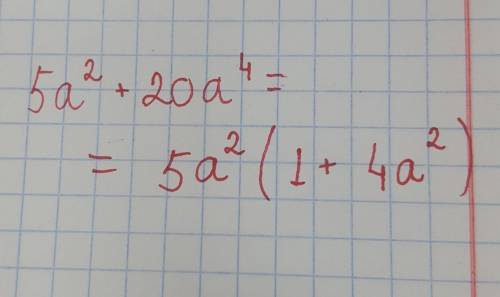 5a² + 20a⁴ =
= 5a² (1 + 4a²)